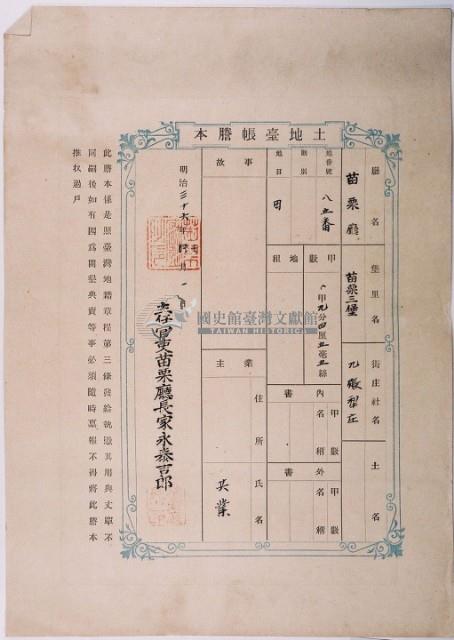 土地臺帳謄本
廳名
苗栗廳
堡里名
苗栗三堡
街庄社名
土名
地番號
八五番
則別
地目
田
甲數
甲九分四厘五毫五絲
地租
內書
名稱
甲數
外書
名稱
甲數
事故
業主
住所
氏名
共業
明治三十六年
苗栗廳長家永泰吉郎
此謄本係是照臺灣地籍章程第三條發給就徵其用與丈單不
同嗣後如有因為開墾典賣等事必須隨時稟報不得將此謄本
推收過戶
國史館臺灣文獻館
TAIWAN HISTORICA